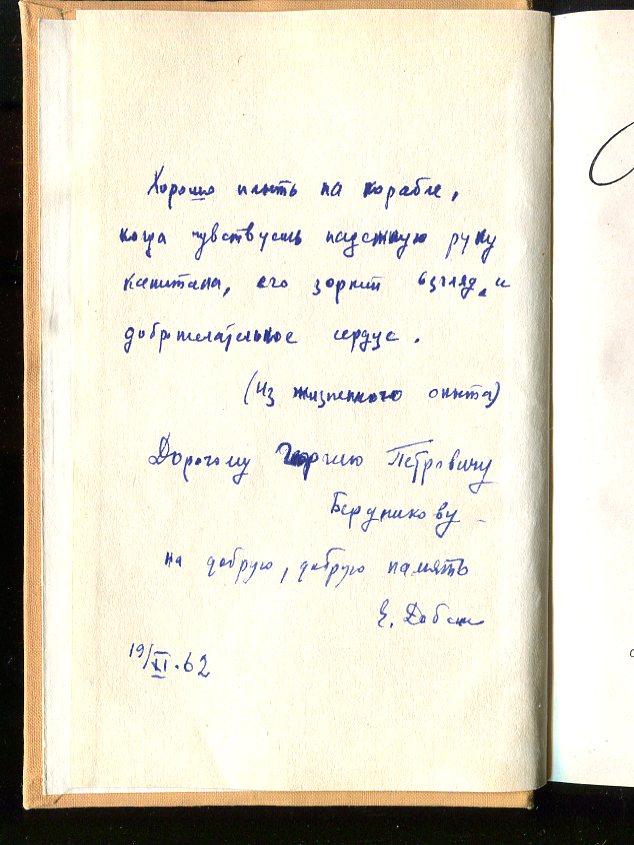 Хорошо плыть на корабле,
когда чувствуешь надежную руку
капитана, его зоркий взгляд и
доброжелательное сердце.
(Из жизненного опыта)
Дорогому Георгию Петровичу
Бердникову
на добрую, добрую память
Е. Добин
19/XI.62